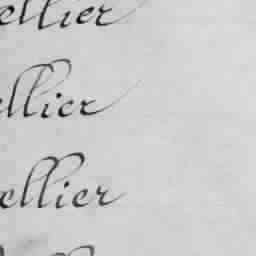 ellier
ellier
ellier